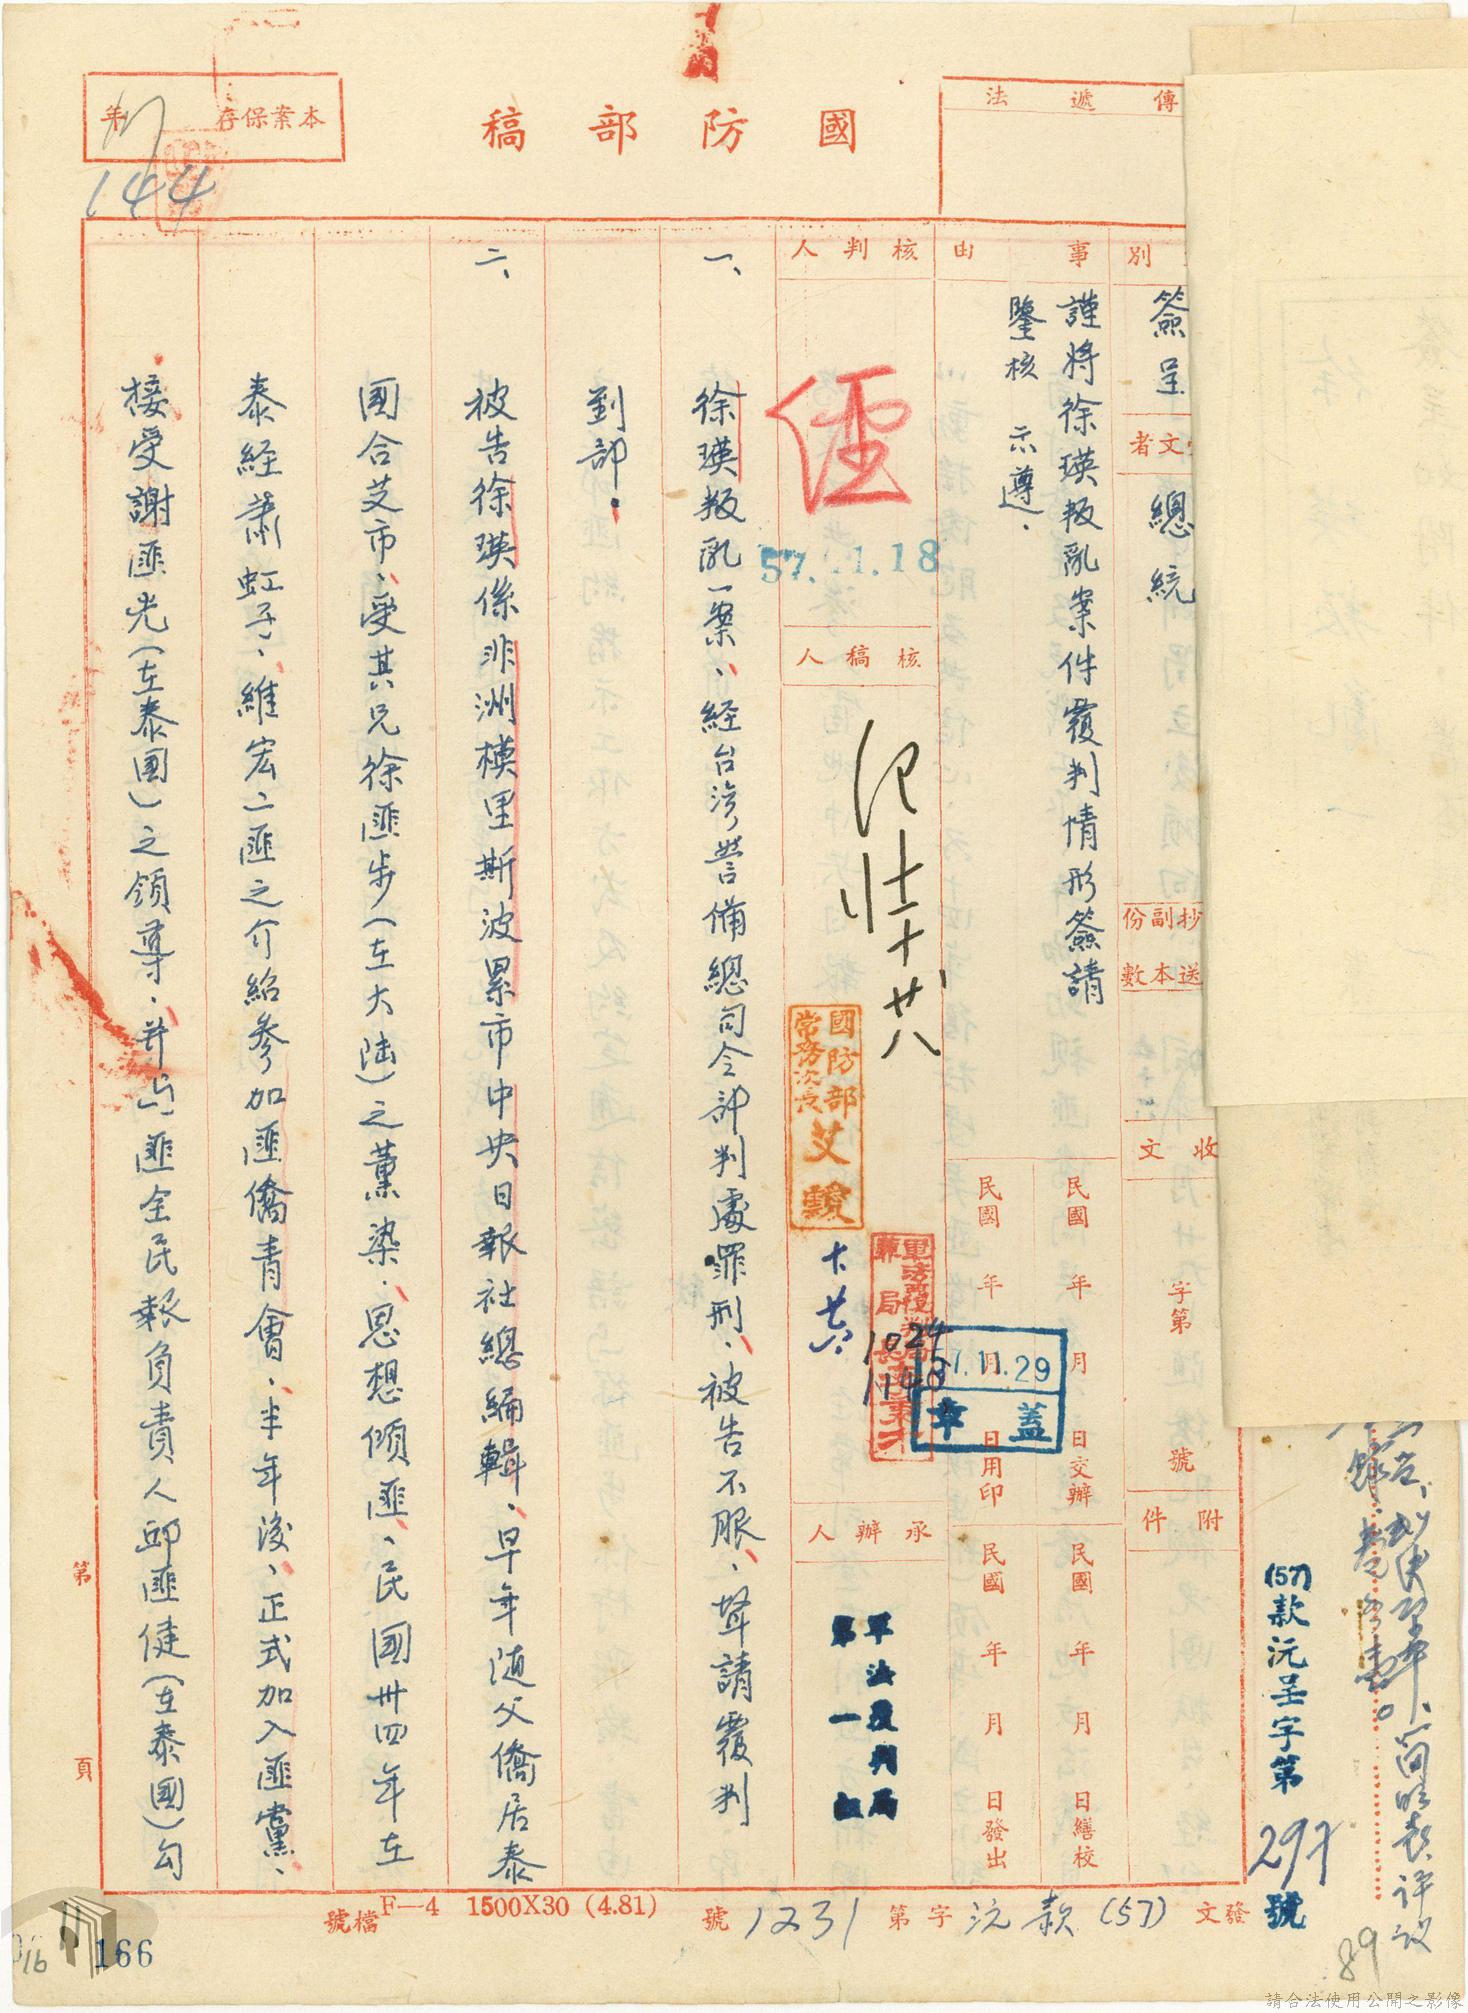 國防部稿
本案保存 年
144
傳遞法
別
簽呈
文者
總統
事由
謹將徐瑛叛亂案件覆判情形簽請
鑒核 示遵．
抄副份
送本數
收文
字第
號
附件
民國 年 月 日交辦
民國 年 月 日繕校
民國 年 月 日用印
民國 年 月 日發出
核判人
57.11.18
核稿人
國防部
常務次長
1024
57.11.29
蓋章
承辦人
軍法覆判局
第一組
一、徐瑛叛亂一案、經台灣警備總司令部判處罪刑、被告不服、聲請覆判
到部．
二、被告徐瑛係非洲模里斯波累市中央日報社總編輯．早年随父僑居泰
國合艾市、受其兄徐匪步（在大陆）之薰染．思想傾匪、民國卅四年在
泰經蕭虹予、維宏二匪之介紹參加匪僑青會．半年後、正式加入匪黨、
接受謝匪光（在泰國）之領導．并与匪全民報負責人邱匪健（在泰國）勾
第 頁
發文（57）款沅字第1231號
F—4 1500X30 (4.81)
檔號
(57)款沅呈字第297號
89
166
16
請合法使用公開之影像